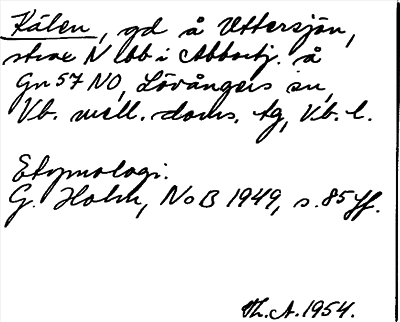 Kålen, gd å Uttersjön,
strax N bb i Abbortj. å
Gn 57 NO, Lövångers sn,
Vb. mell. doms. tg, Vb. l.
Etymologi.
G. Holm, NoB 1949, s. 85 ff.
Th. A. 1954.